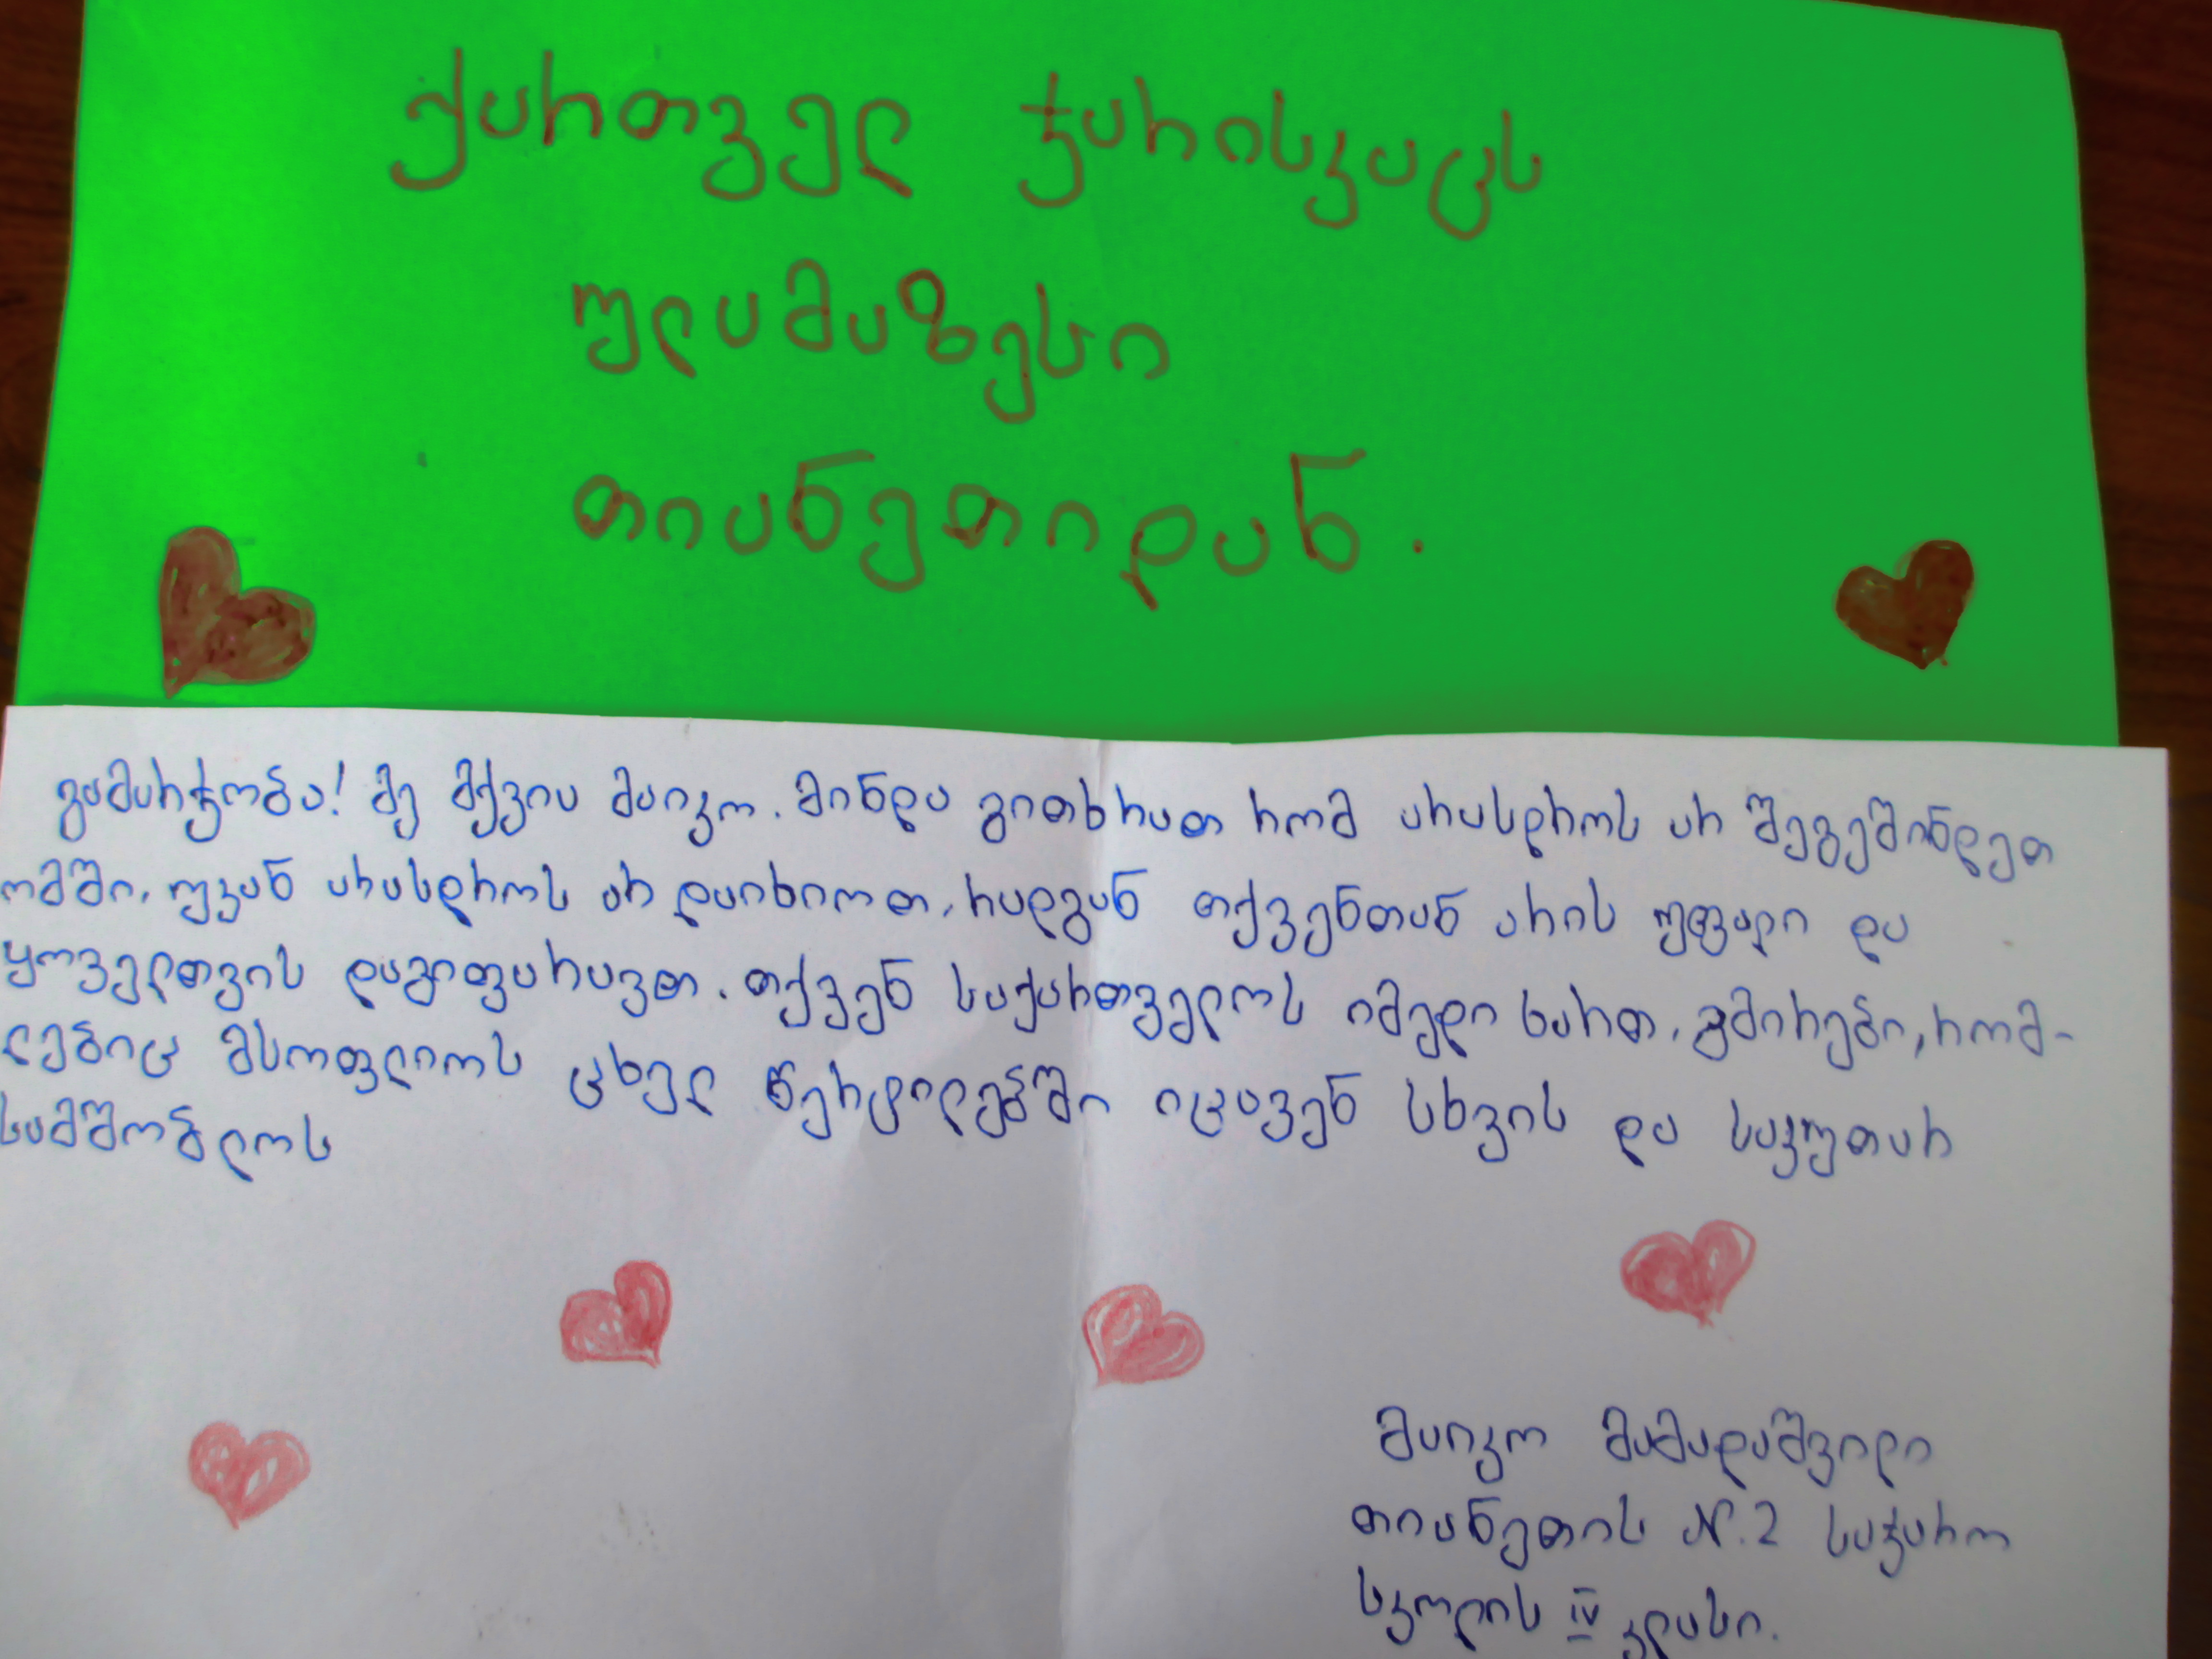 ქართველ ჯარისკაცს
ულამაზესი
თიანეთიდან.
გამარჯობა! მე მქვია მაიკო. მინდა გითხრათ რომ არასდროს არ შეგეშინდეთ
ომში, უკან არასდროს არ დაიხიოთ, რადგან თქვენთან არის უფალი და
ყოველთვის დაგიფარავთ. თქვენ საქართველოს იმედი ხართ, გმირები, რომ-
ლებიც მსოფლიოს ცხელ წერტილებში იცავენ სხვის და საკუთარ
სამშობლოს
მაიკო მამადაშვილი
თიანეთის N.2 საჯარო
სკოლის IV კლასი.